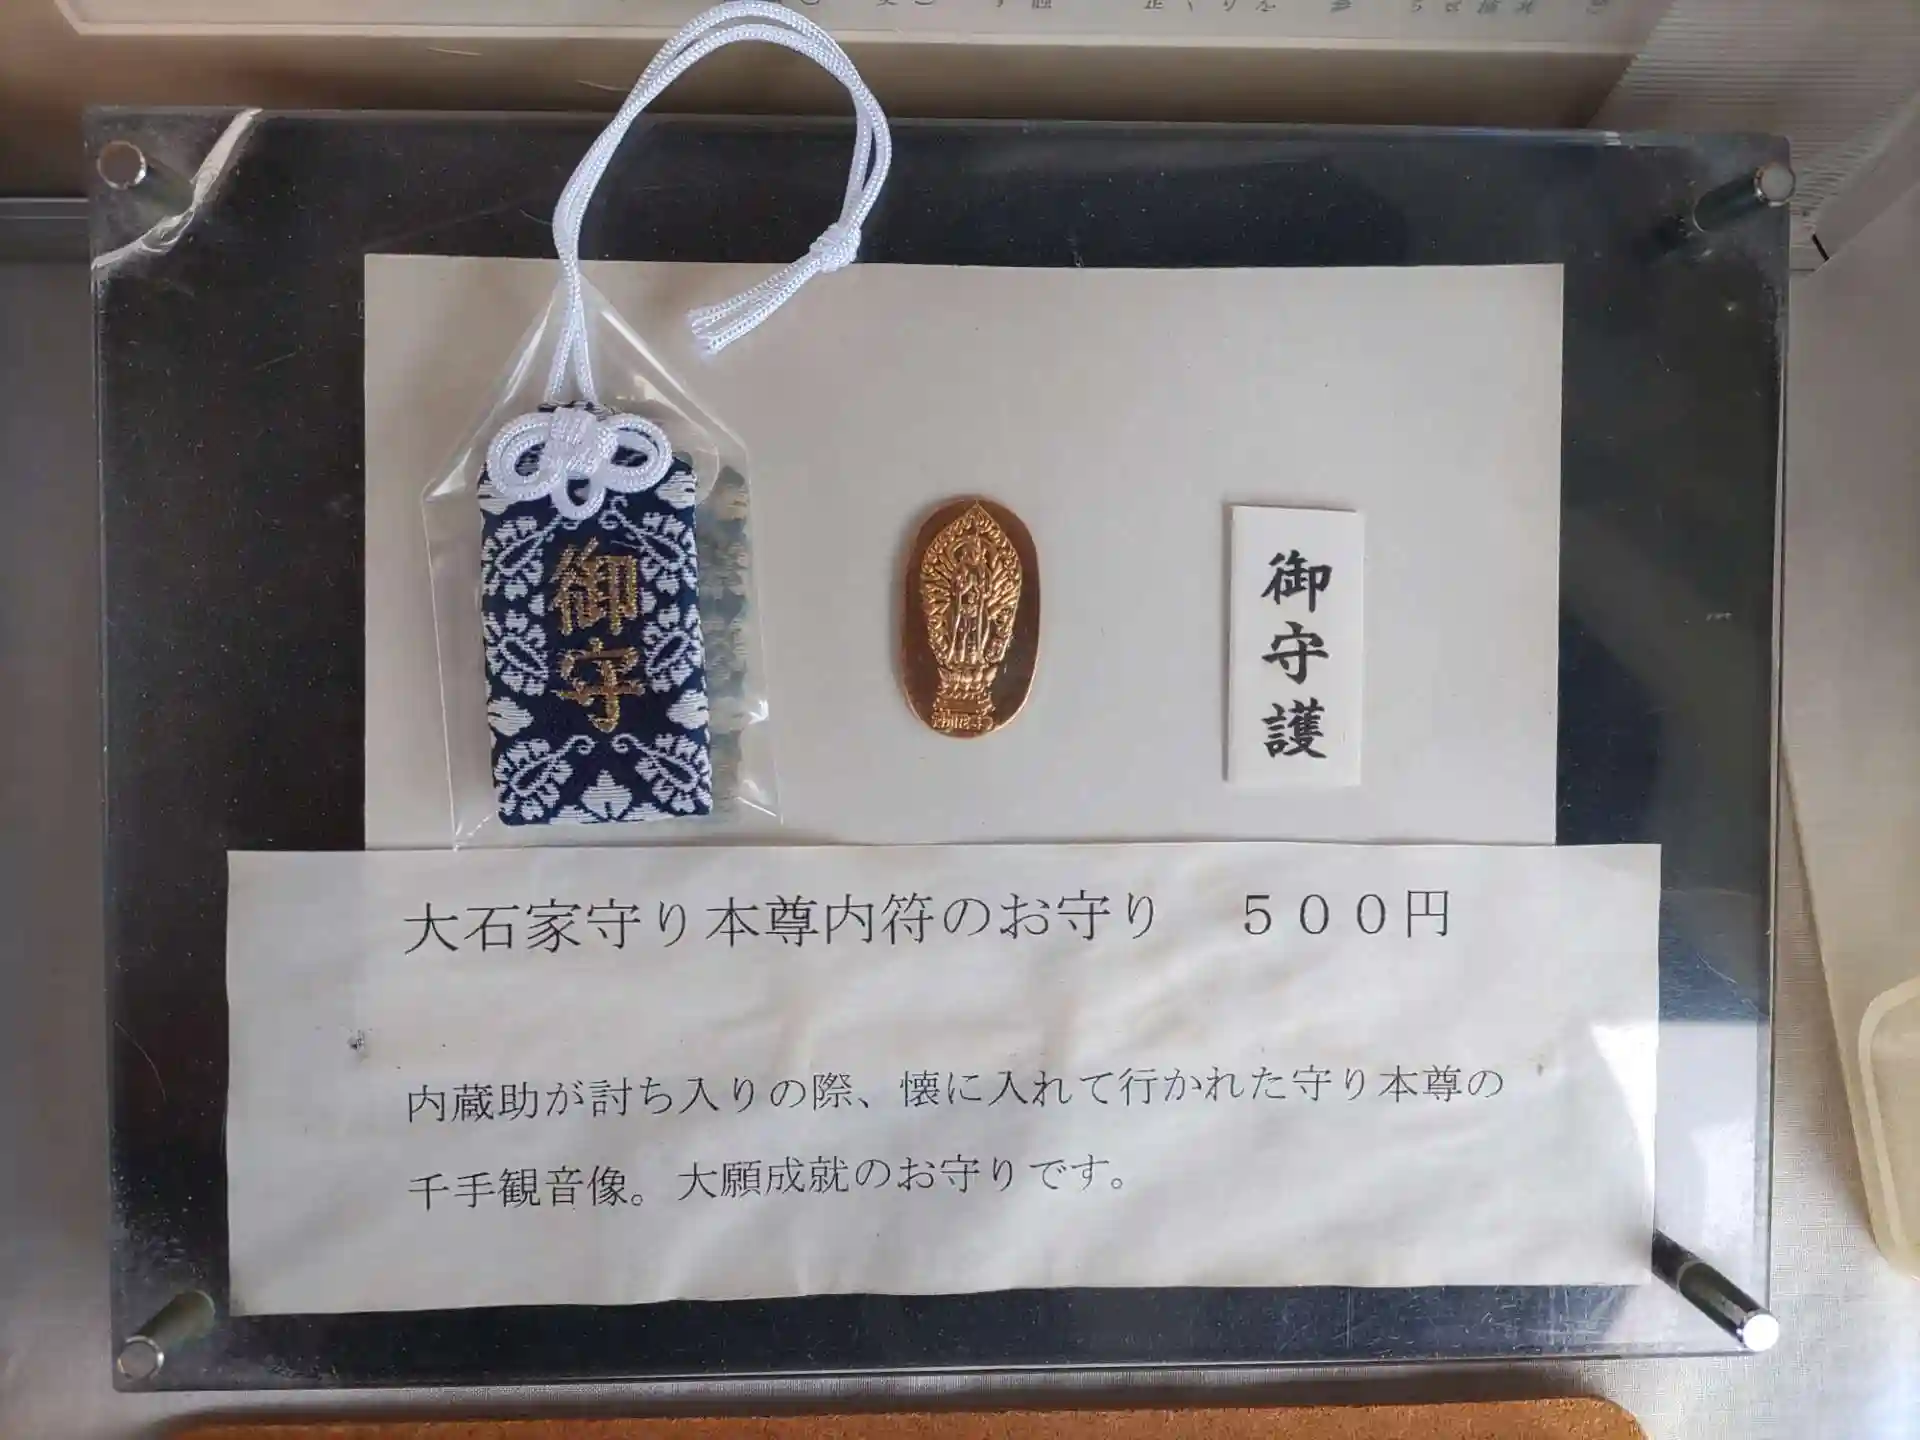 御守
御守護
大石家守り本尊内符のお守り　５００円
内蔵助が討ち入りの際、懐に入れて行かれた守り本尊の
千手観音像。大願成就のお守りです。